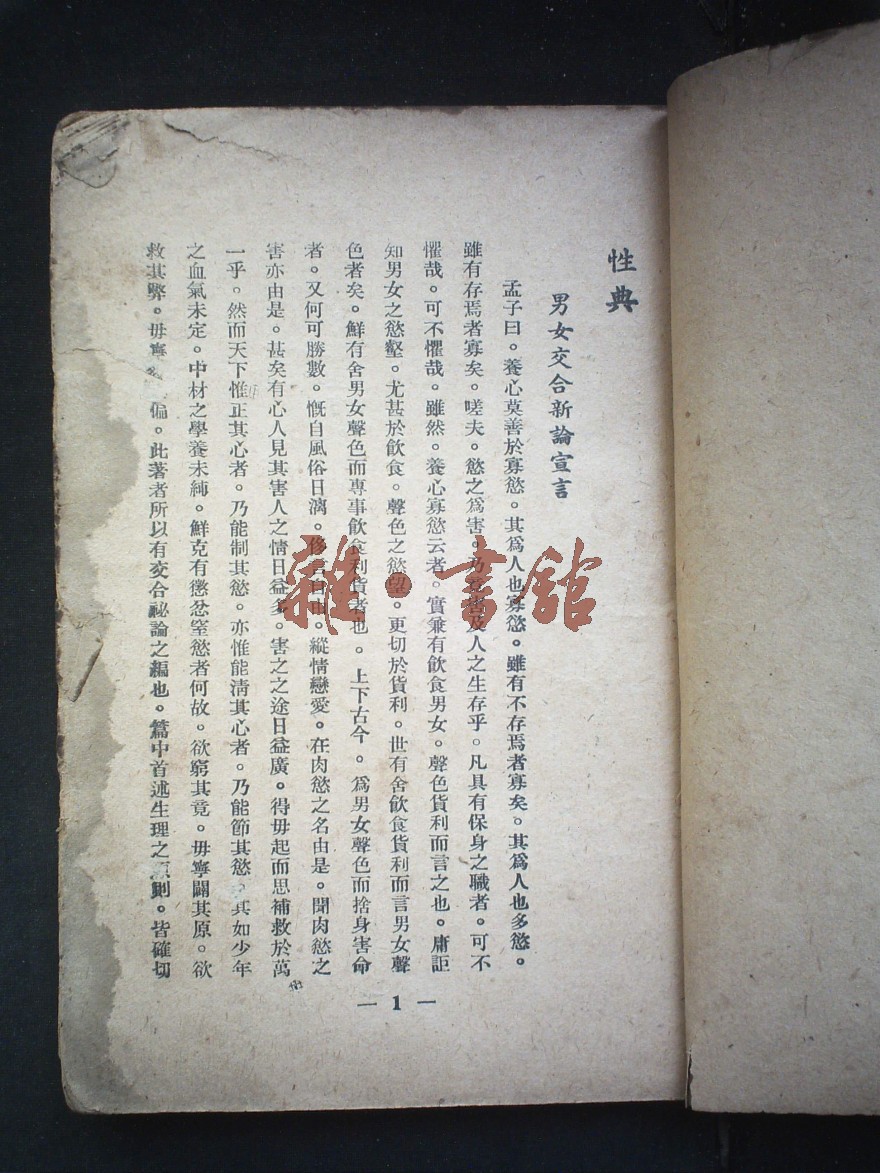 性典
男女交合新論宣言
孟子曰。養心莫善於寡慾。其爲人也寡慾。雖有不存焉者寡矣。其爲人也多慾。
雖有存焉者寡矣。嗟夫。慾之爲害。乃及人之生存乎。凡具有保身之職者。可不
懼哉。可不懼哉。雖然。養心寡慾云者。實兼有飲食男女。聲色貨利而言之也。庸詎
知男女之慾壑。尤甚於飲食。聲色之慾望。更切於貨利。世有舍飲食貨利而言男女聲
色者矣。鮮有舍男女聲色而專事飲食利貨者也。上下古今。爲男女聲色而捨身害命
者。又何可勝數。慨自風俗日漓。侈言自由。縱情戀愛。在肉慾之名由是。聞肉慾之
害亦由是。甚矣有心人見其害人之情日益多。害之之途日益廣。得毋起而思補救於萬
一乎。然而天下惟正其心者。乃能制其慾。亦惟能淸其心者。乃能節其慾。其如少年
之血氣未定。中材之學養未純。鮮克有懲忿窒慾者何故。欲窮其竟。毋寧闢其原。欲
救其弊。毋寧 偏。此著者所以有交合祕論之編也。篇中首述生理之原則。皆確切
— 1 —
雜·書舘